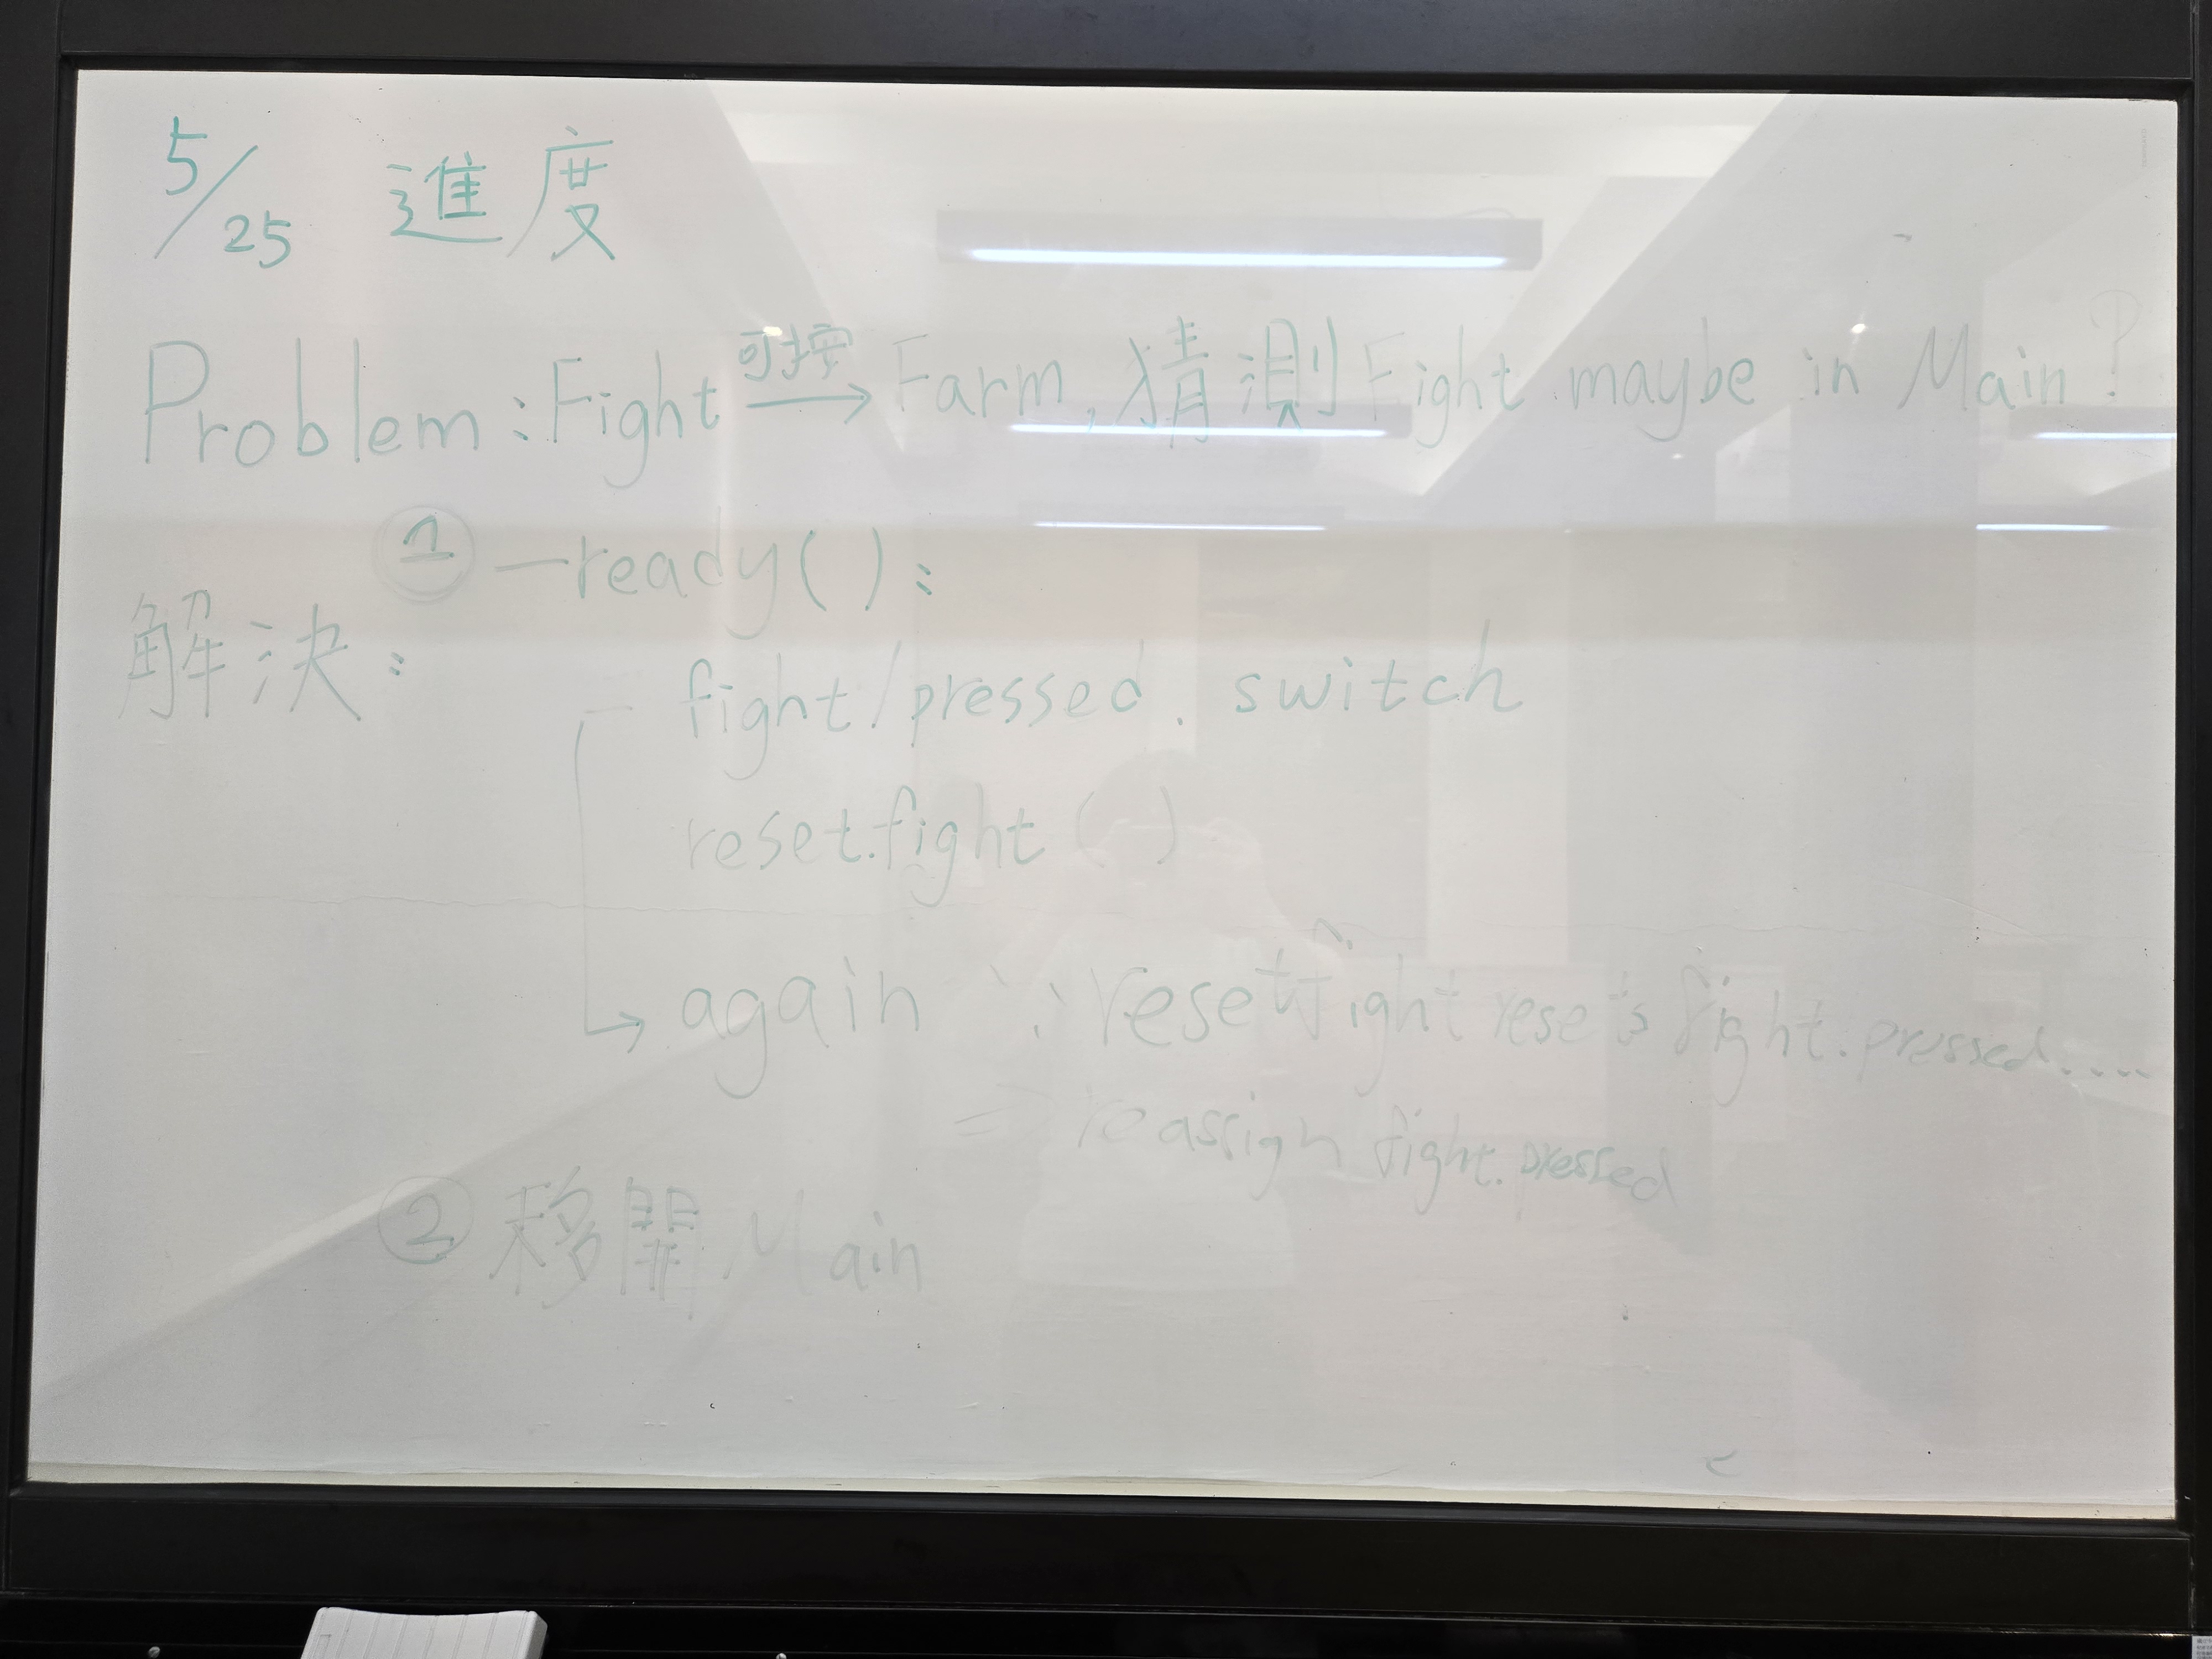 5/25 進度
Problem : Fight 可按 → Farm, 猜測 Fight maybe in Main ?
① _ready( ) :
解決 :
fight/pressed. switch
reset.fight ( )
→ again ∵ resetfight resets fight.pressed....
⇒ reassign fight.pressed
② 移開 Main